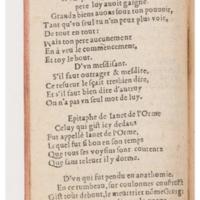 pere luy auoit gaigné.
Grands biens auons soubs ton pouuoir,
Tant qu'vn seul tu n'en peux plus voir,
De tout en tout:
Mais ton pere aucunement
En a veu le commencement,
Et toy le bout.
D'vn mesdisant.
S'il faut outrager & mesdire,
Ce resueur le sçait tresbien dire,
Et s'il faut bien dire d'autruy
On n'a pas vn seul mot de luy.
Epitaphe de Ianet de l'Orme
Celuy qui gist icy dedans
Fut appellé Ianet de l'Orme,
Lequel fut si bon en son temps
Que tous ses voysins sont contents
Que sans resueil il y dorme.
D'vn qui fut pendu en anathomie.
En ce tumbeau, sur coulonnes
Gist tout debout, le